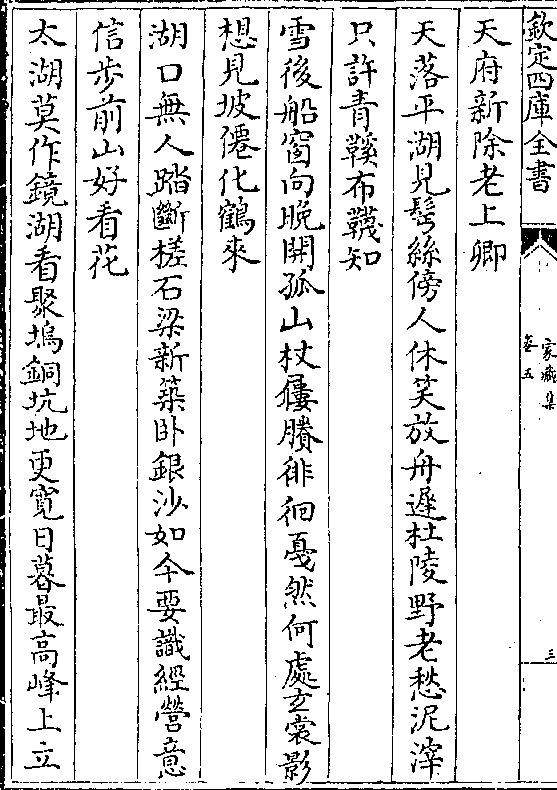 欽定四庫全書
家藏集
卷五
三
天府新除老上卿
天落平湖見鬂絲傍人休笑放舟遲杜陵野老愁泥滓
只許青鞵布韈知
雪後船窗向晚開孤山杖屨賸徘徊戞然何處玄裳影
想見坡僊化鶴來
湖口無人踏斷槎石梁新築卧銀沙如今要識經營意
信步前山好看花
太湖莫作鏡湖看聚塢銅坑地更寛日暮最高峰上立